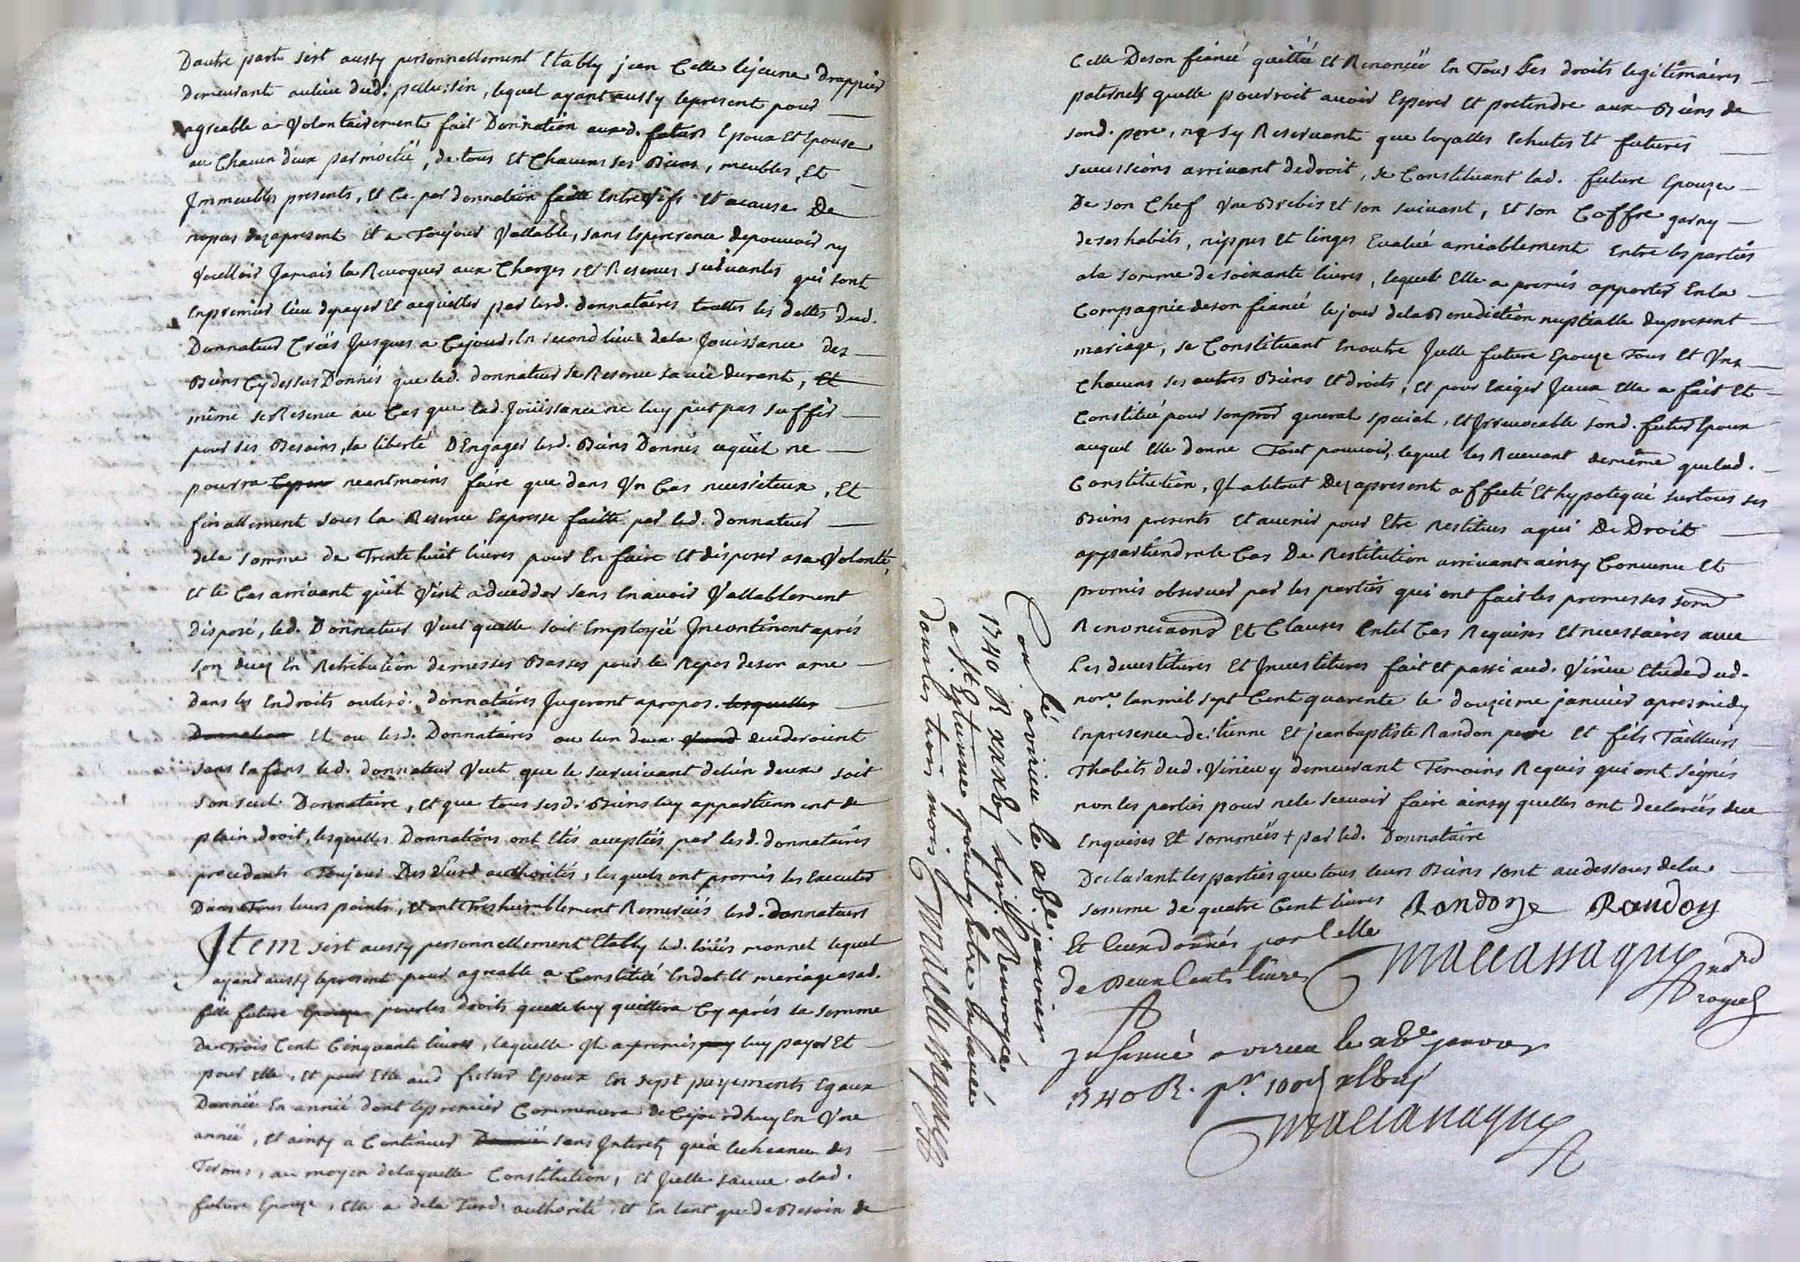 Dautre part sest aussy personnellement Etably jean Celle lejeune drappier
demeurant aulieu dud. pellussin, lequel ayant aussy lepresent pour
agreable a volontairement fait Donnation auxd. futur Epoux Et Epouse
au Chacun deux par moitié, de tous Et Chacuns ses Biens, meubles, Et
Jmmeubles presents, Et Ce par donnation faitte Entrevifs Et acause De
nopas dezapresent Et a Toujour Vallable, sans Esperence depouvoir ny
Voulloir Jamais la Revoquer aux Charges, Et Reserves suivantes qui sont
Enpremier lieu depayer Et acquitter par lesd. donnataires touttes les dettes dud.
Donnateur Créés Jusques a Cejour, En second lieu dela Jouissance des
Biens Cydessus Donnés que led. donnateur se Reserve sa vie durant, Et
même se Reserve au Cas que lad. Joüissance ne luy put pas suffir
pour ses Besoins, la liberté DEngager lesd. Biens Donnés cequil ne
pourra neantmoins faire que dans Un Cas necessiteux, Et
finallement sous la Reserve Expresse faitte par led. donnateur
dela somme de Trente huit livres pour En faire Et disposer a sa Volonté,
Et le Cas arrivant quil Vint a decedder sans Enavoir Vallablement
disposé, led. Donnateur Veut quelle soit Employéé Jncontinent aprés
son decez En Retribution demesses Basses pour le Repos deson ame
dans les Endroits ou lesd. donnataires Jugeront apropos. lesquelles
Donnation Et ou lesd. Donnataires ou lun deux decederoient
sans Enfans led. donnateur Veut que le survivant delun deux soit
son seul Donnataire, Et que tous sesd. Biens luy appartiennent de
plein droit, lesquelles Donnations ont Etés acceptéés par lesd. donnataires
procedants Toujour Des Susd. authorités, lesquels ont promis les Executer
Dans Tous leurs points, Et ont Treshumblement Remerciés lesd. donnateurs
Jtem sest aussy personnellement Etably led. loüis monnet lequel
ayant aussy lepresent pour agreable a Constitué Endot Et mariage a sad.
fille future Epouze pour les droits quelle luy quittera Cy aprés la somme
De Trois Cent Cinquante livres, laquelle Jl a promis luy payer Et
pour Elle, Et pour Elle aud futur Epoux En sept payements Egaux
Dannéé En annéé dont lepremier Commencera de Cejourdhuy En Une
annéé, Et ainsy a Continuer sans Jnterets qua lecheance des
Termes, au moyen delaquelle Constitution, Et Jcelle sauve alad.
future Epouze, Elle a dela Susd. authorité Et En tant que de Besoin de
Celle Deson fiancé quitté Et Renoncé En Tous Les droits legitimaires
paternels quelle pourroit avoir Esperer Et pretendre aux Biens de
sond. pere, ne sy Reservant que loyalles Echutes Et futures
successions arrivant dedroit, se Constituant lad. future Epouze
De son Chef Une Brebis et son suivant, Et son Coffre garny
de ses habits, nippes Et linges Evalué amiablement Entre les parties
ala somme de soixante livres, lequel Elle a promis apporter En la
Compagnie deson fiancé le jour dela Benediction nuptialle dupresent
mariage, se Constituant En outre Jcelle future Epouze Tous Et Uns
Chacuns ses autres Biens Et droits, Et pour Exiger Jceux Elle a fait Et
Constitué pour son procr general special, Et Jrrevocable sond. futur Epoux
auquel Elle donne Tout pouvoir, lequel les Recevant de même que lad.
Constitution, Jl a le tout Dezapresent affecté Et hypotequé sur tous ses
Biens presents Et avenir pour Etre Restitues a qui De Droit
appartiendra le Cas De Restitution arrivant ainsy Convenu Et
promis observer par les parties qui ont fait les promesses
Renonciaons Et Clauses Entel Cas Requises Et necessaires avec
Les devestitures Et Jnvestitures fait et passé aud. Virieu Etude dud.
nore. Lan mil sept Cent quarente le douzieme janvier apres midy
En presence de etienne Et jean baptiste Randon pere Et fils Tailleurs
dhabits dud. Virieu y demeurant Temoins Requis qui ont signés
non les parties pour ne le scavoir faire ainsy quelles ont declaréés de ce
Enquises Et Sommeés + par led. Donnataire
Declarant les parties que tous leurs Biens sont au dessous dela
somme de quatre Cent livres Randon Randon
Et Ceux donnés par Celle
de Deux Cents livres
Jnsinué a virieu le 18e janvier
1740 R. pr
Con lé a virieu le 18e janvier